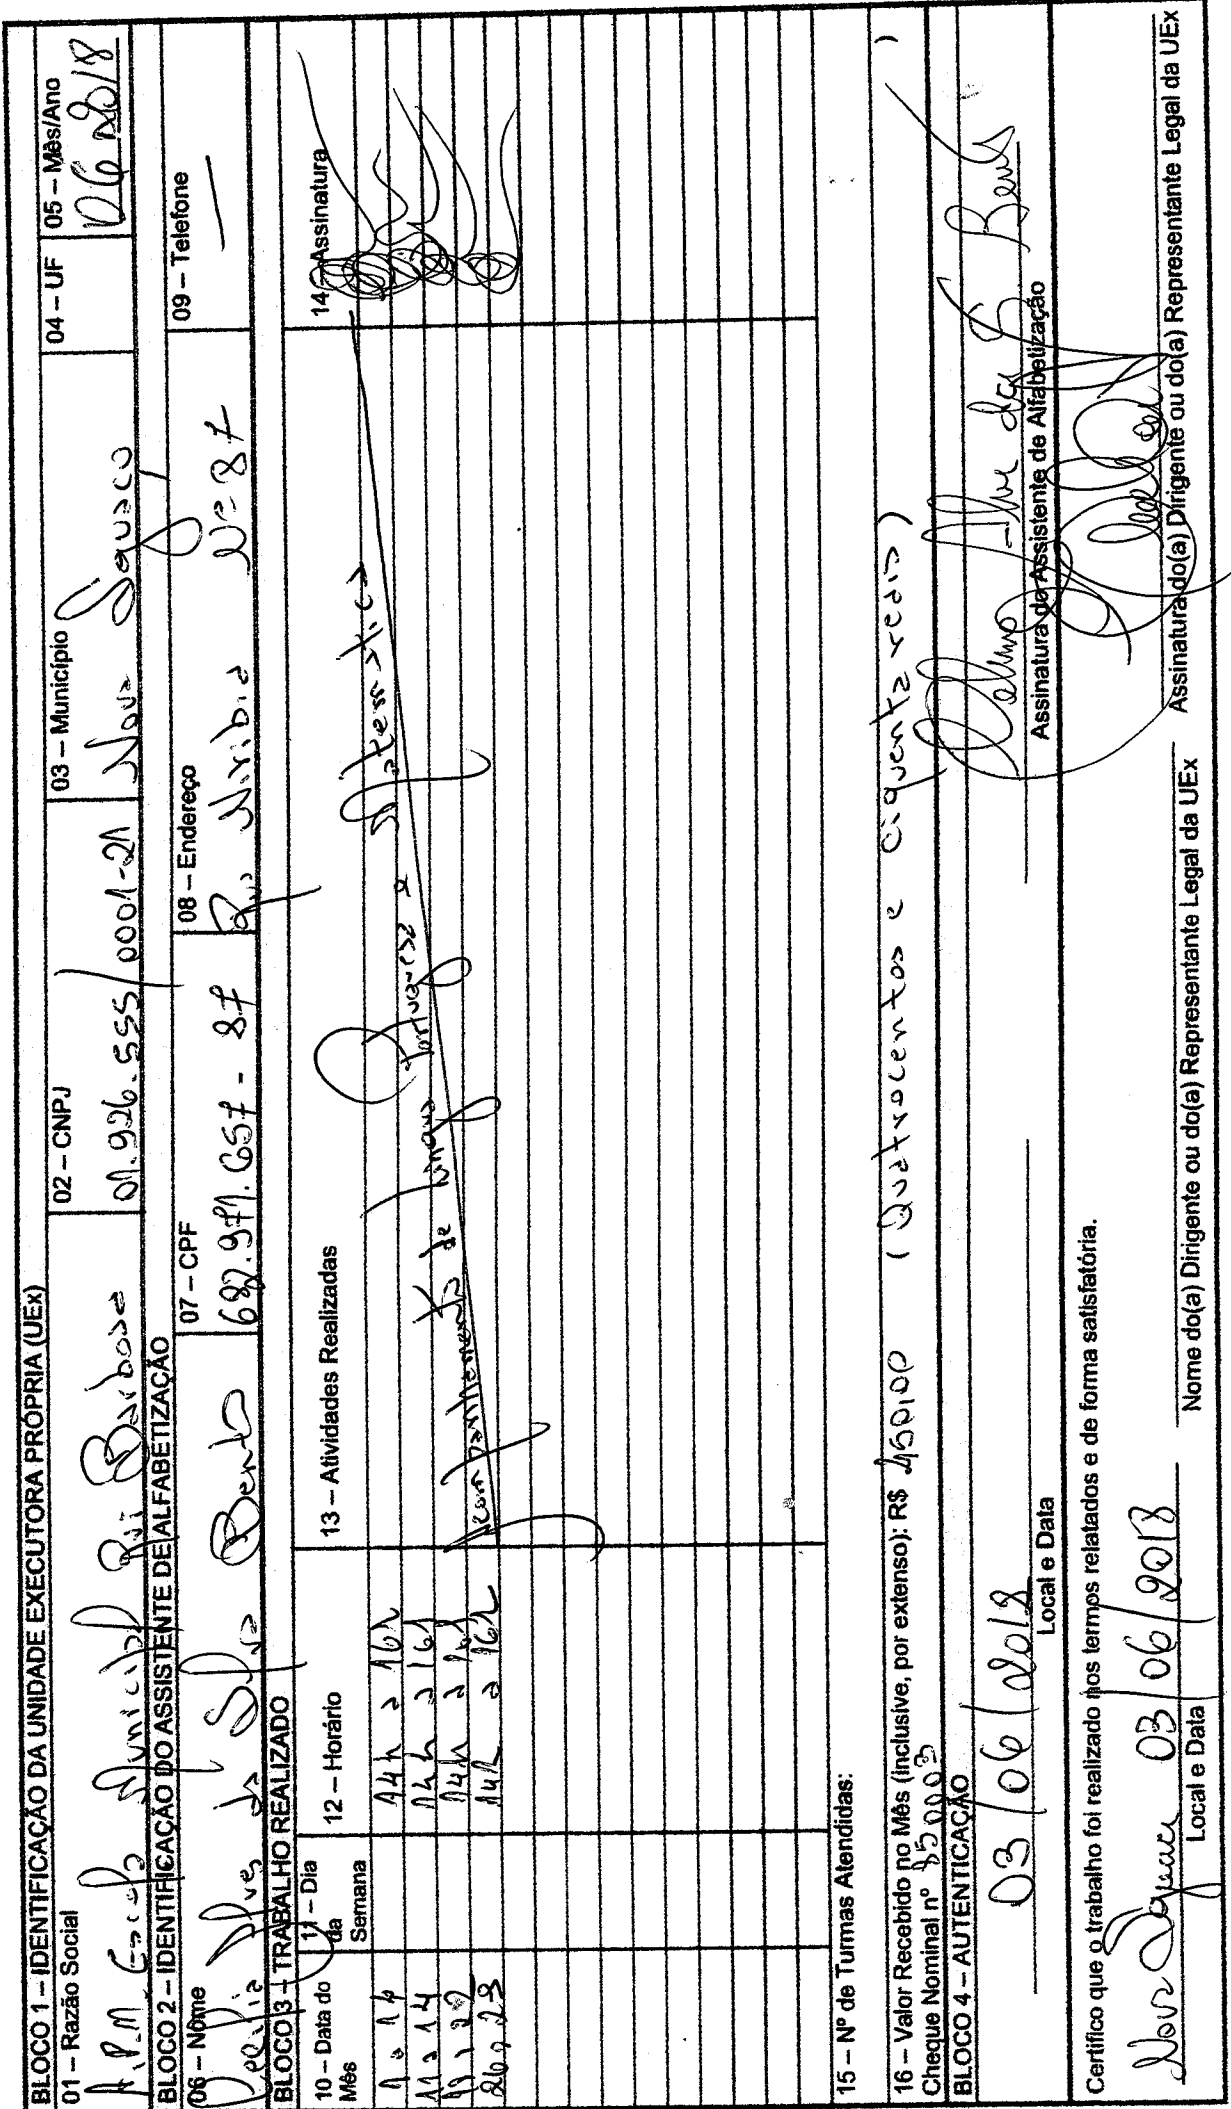 BLOCO 1 – IDENTIFICAÇÃO DA UNIDADE EXECUTORA PRÓPRIA (UEx)
01 – Razão Social
A.P.M. Escola Municipal Rui Barbosa
02 – CNPJ
01.926.555/0001-21
03 – Município
Nova Iguaçu
04 – UF
05 – Mês/Ano
06 2018
BLOCO 2 – IDENTIFICAÇÃO DO ASSISTENTE DE ALFABETIZAÇÃO
06 – Nome
Alves da Silva Bento
07 – CPF
682.971.657-87
08 – Endereço
Rua Nº 87
09 – Telefone
—
BLOCO 3 – TRABALHO REALIZADO
10 – Data do Mês
11 – Dia da Semana
12 – Horário
13 – Atividades Realizadas
14 – Assinatura
14h a 16h
11 a 14 14h a 16h
14h a 16h
14h a 16h
Acompanhamento de Língua Portuguesa e Matemática
15 – Nº de Turmas Atendidas:
16 – Valor Recebido no Mês (inclusive, por extenso): R$ 450,00 ( Quatrocentos e ciquenta reais )
Cheque Nominal nº 850003 )
BLOCO 4 – AUTENTICAÇÃO
03/06/2018
Local e Data
Assinatura do Assistente de Alfabetização
Certifico que o trabalho foi realizado nos termos relatados e de forma satisfatória.
Nova Iguacu 03/06/2018
Local e Data
Nome do(a) Dirigente ou do(a) Representante Legal da UEx
Assinatura do(a) Dirigente ou do(a) Representante Legal da UEx